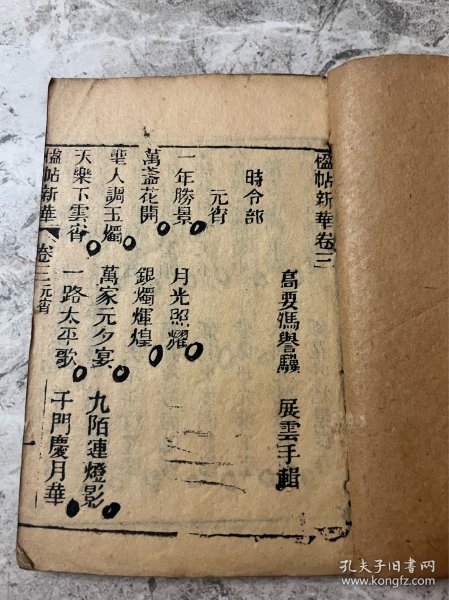 楹帖新華卷三
高要馮譽驥 展雲手輯
時令部
元宵
一年勝景 月光照耀
萬盞花開 銀燭煇煌
聖人調玉燭 萬家元夕宴 九陌連燈影
天樂下雲宵 一路太平歌 千門慶月華
楹帖新華 卷三 元宵 一
孔夫子旧书网
www.kongfz.com